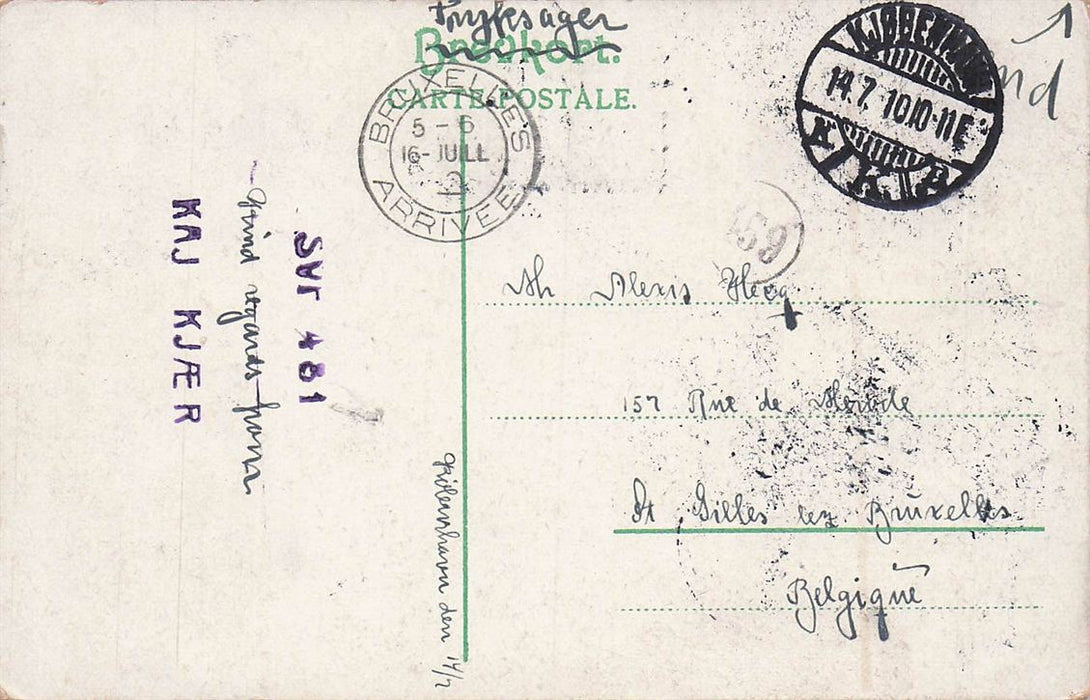 Tryksager
Brevkort.
CARTE POSTALE.
BRUXELLES
5-6
16-JUILL
ARRIVEE
KJØBENHAVN
14.7.10 10-11E
K.K.B
59
Mr Alexis Hecq
157 Rue de Mérode
St Gilles lez Bruxelles
Belgique
SVF 481
Kind regards from
KAJ KJÆR
København den 14/7